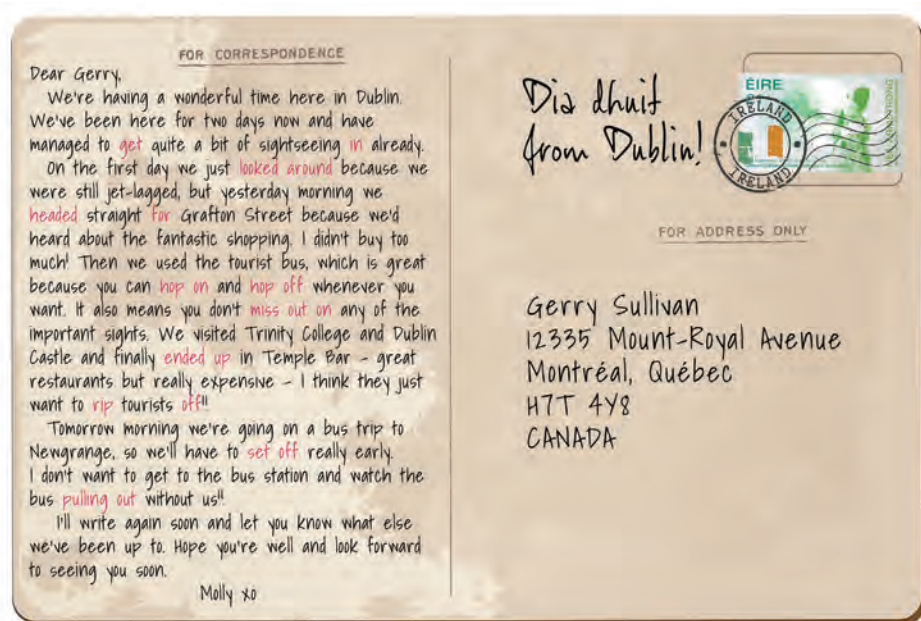 FOR CORRESPONDENCE
Dear Gerry,
We're having a wonderful time here in Dublin.
We've been here for two days now and have
managed to get quite a bit of sightseeing in already.
On the first day we just looked around because we
were still jet-lagged, but yesterday morning we
headed straight for Grafton Street because we'd
heard about the fantastic shopping. I didn't buy too
much! Then we used the tourist bus, which is great
because you can hop on and hop off whenever you
want. It also means you don't miss out on any of the
important sights. We visited Trinity College and Dublin
Castle and finally ended up in Temple Bar – great
restaurants but really expensive – I think they just
want to rip tourists off!!
Tomorrow morning we're going on a bus trip to
Newgrange, so we'll have to set off really early.
I don't want to get to the bus station and watch the
bus pulling out without us!!
I'll write again soon and let you know what else
we've been up to. Hope you're well and look forward
to seeing you soon.
Molly xo
Dia dhuit
from Dublin!
ÉIRE
IRELAND
IRELAND
FOR ADDRESS ONLY
Gerry Sullivan
12335 Mount-Royal Avenue
Montréal, Québec
H7T 4Y8
CANADA